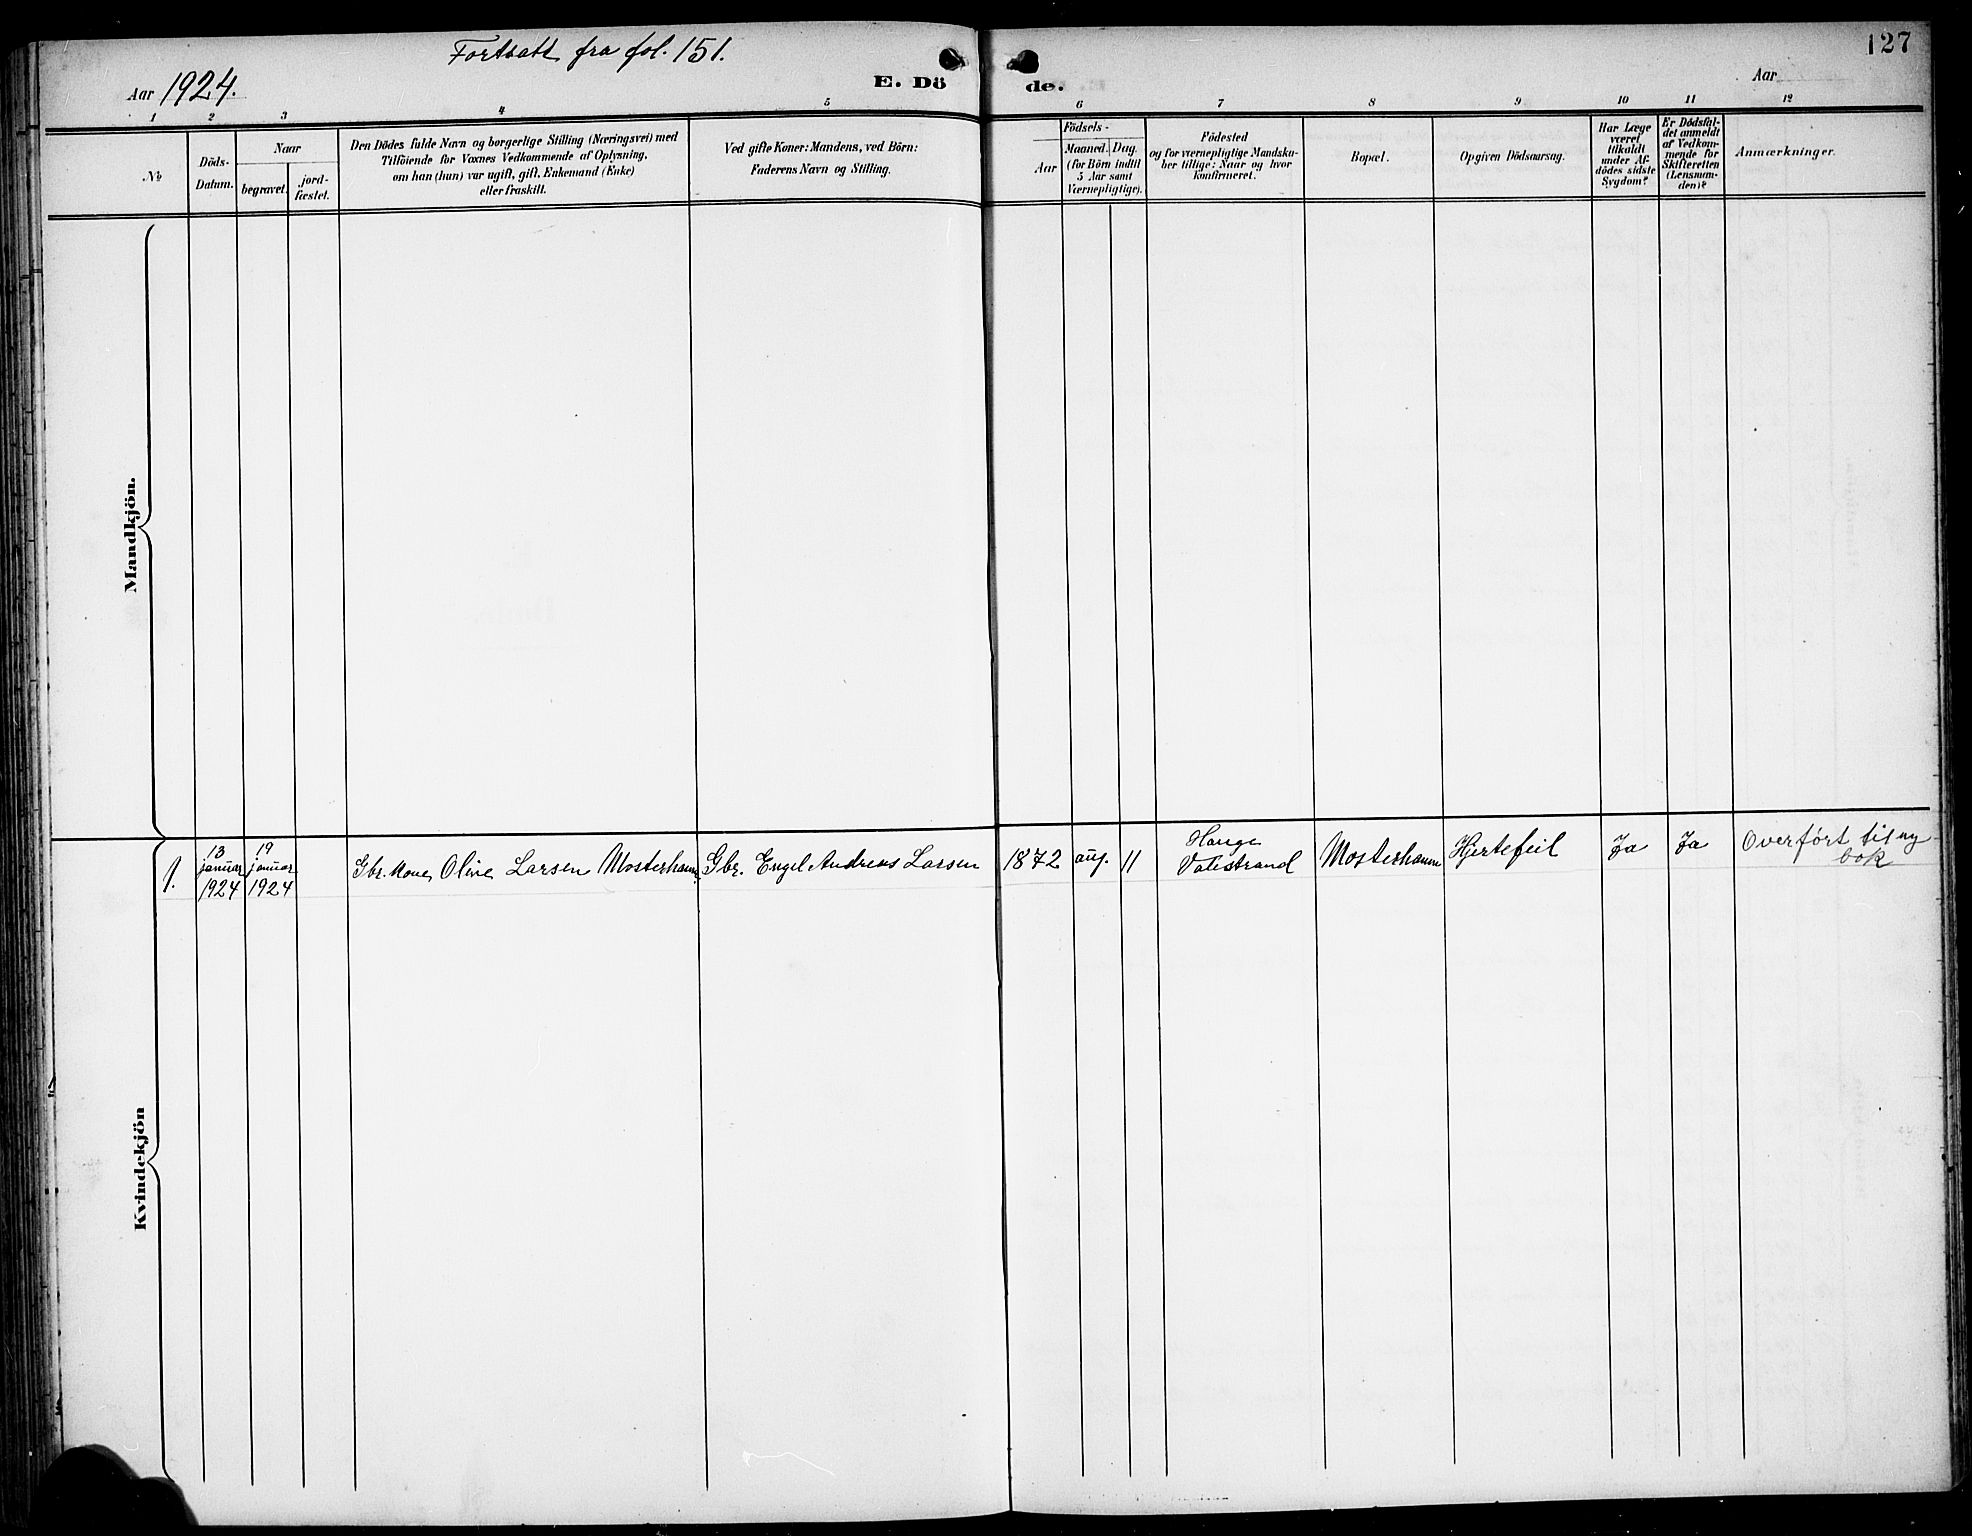 Fortsatt fra fol. 151.
127
Aar 1924.
E. Dö
de.
Aar
1 2 3 4 5 6 7 8 9 10 11 12
№
Döds-
Datum.
Naar
begravet.
jord-
fæstet.
Den Dödes fulde Navn og borgerlige Stilling (Næringsvei) med
Tilföiende for Voxnes Vedkommende af Oplysning,
om han (hun) var ugift, gift, Enkemand (Enke)
eller fraskilt.
Ved gifte Koner: Mandens, ved Börn:
Faderens Navn og Stilling.
Aar
Födsels-
Maaned. Dag.
(for Börn indtil
5 Aar samt
Værnepligtige).
Födested
og for værnepligtige Mandska-
ber tillige: Naar og hvor
konfirmeret.
Bopæl.
Opgiven Dödsaarsag.
Har Læge
været
tilkaldt
under Af-
dödes sidste
Sygdom?
Er Dödsfal-
det anmeldt
af Vedkom-
mende for
Skifteretten
(Lensman-
den)?
Anmærkninger.
Mandkjön.
Kvindekjön
1.
13
januar
1924
19
januar
1924
Gbr. Kone Olive Larsen Mosterhamn
Gbr. Engel Andreas Larsen
1872
aug.
11
Hauge
Valestrand
Mosterhamn
Hjertefeil
Ja
Ja
Overført til ny
bok